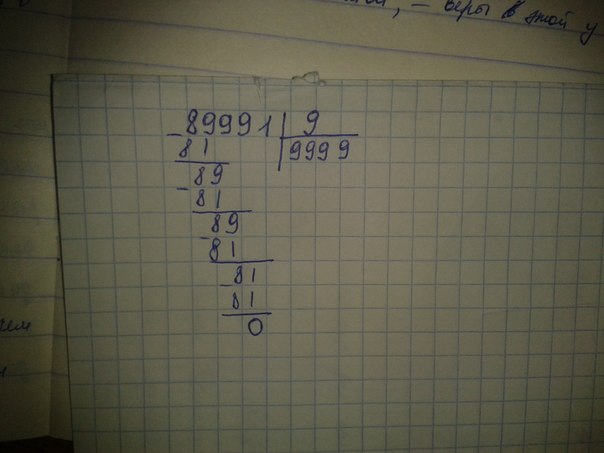 , — веры в этой у
89991 9
- 81 9999
89
- 81
89
- 81
81
- 81
0
чем